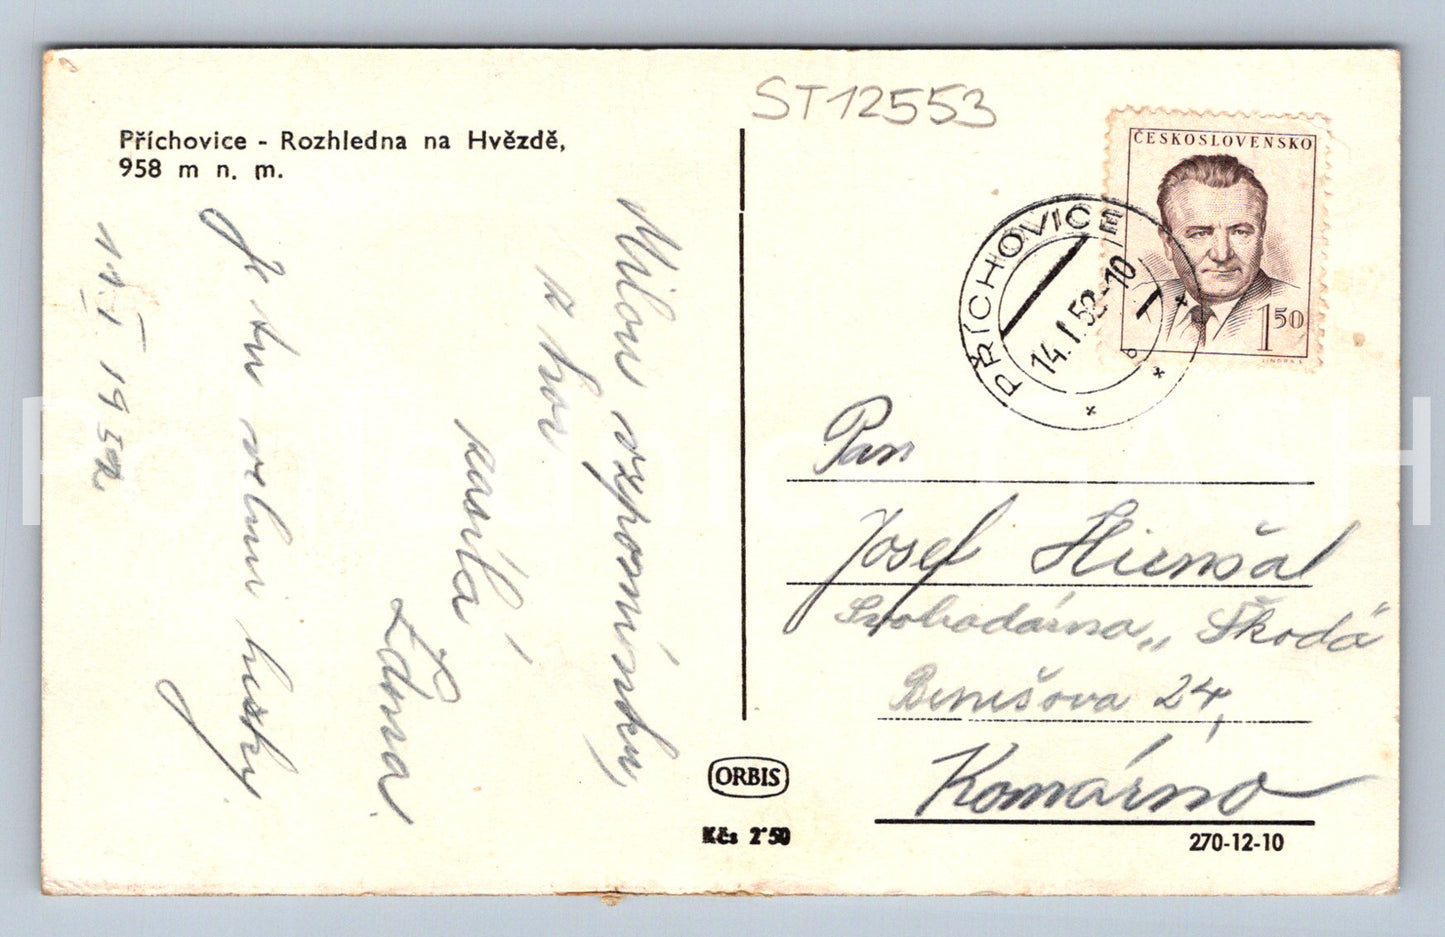 ST12553
Příchovice - Rozhledna na Hvězdě,
958 m n. m.
Milou vzpomínku,
z hor
posílá
Zdena.
Je tu velmi hezky
11. I 1952
ČESKOSLOVENSKO
1 50
JINDRA S.
PŘÍCHOVICE
14. I. 52-10
b
Pan
Josef Hienšal
Svobodárna „Škoda"
Benešova 24,
Komárno
ORBIS
Kčs 2'50
270-12-10